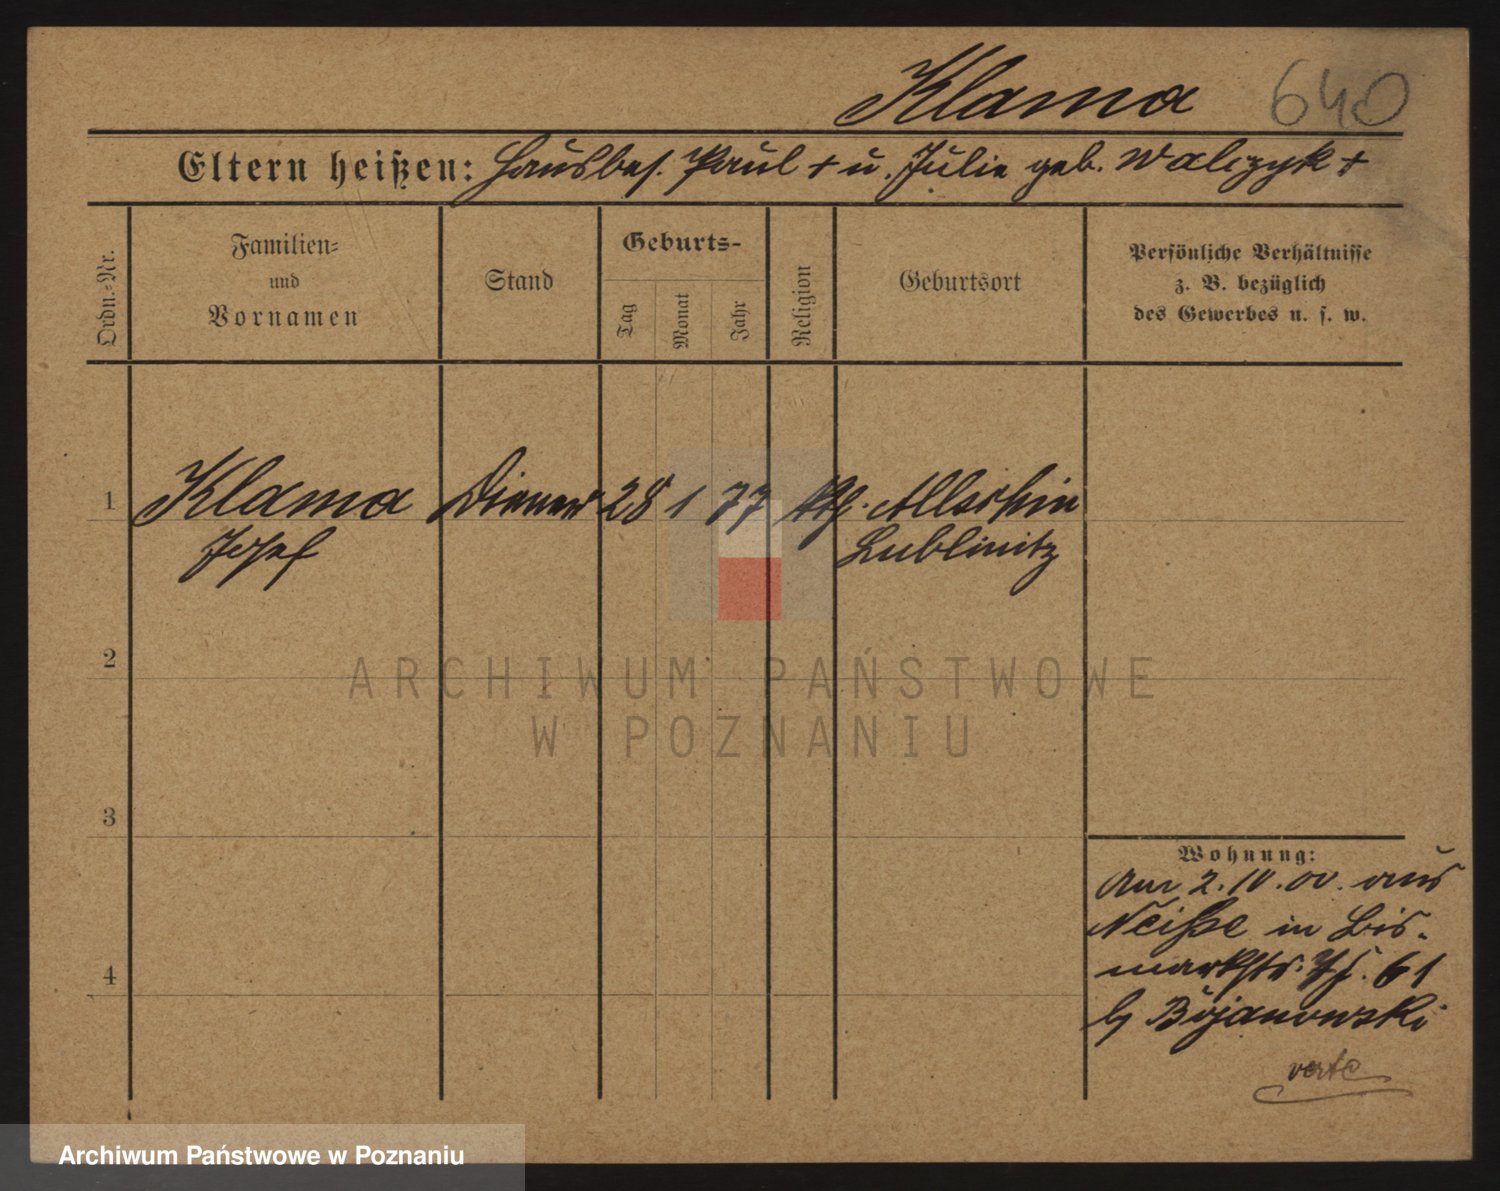 Klama 640
Eltern heißen: Hausbes. Paul + u. Julie geb. Walczyk +
Ordn.-Nr.
Familien-
und
Vornamen
Stand
Geburts-
Tag
Monat
Jahr
Religion
Geburtsort
Persönliche Verhältnisse
z. B. bezüglich
des Gewerbes u. s. w.
1 Klama Diener 28 1 77 kth.
Josef Lublinitz
2
ARCHIWUM PAŃSTWOWE
W POZNANIU
3
Wohnung:
Am 2. 10. 00. aus
Neiße in Bis-
markstr. 61
b/ Bojanowski
4
verte
Archiwum Państwowe w Poznaniu